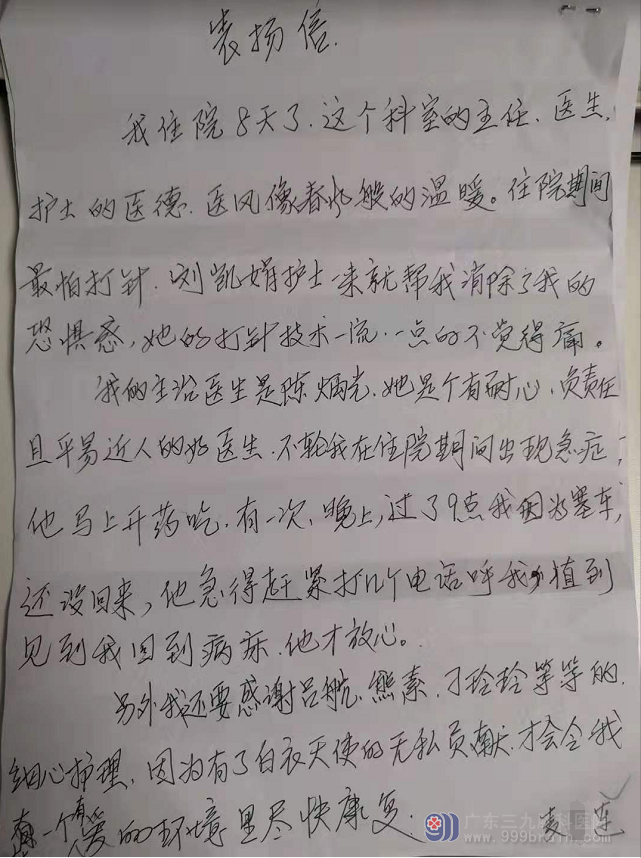 表扬信.
我住院8天了.这个科室的主任.医生.
护士的医德.医风像春风般的温暖。住院期间
最怕打针.刘凯娟护士一来就帮我消除了我的
恐惧感,她的打针技术一流.一点的不觉得痛。
我的主治医生是陈炳光.她是个有耐心.负责任
且平易近人的好医生.不轮我在住院期间出现急症,
他马上开药吃.有一次、晚上,过了9点我因为塞车,
还没回来,他急得赶紧打几个电话呼我.植到
见到我回到病床.他才放心。
另外我还要感谢吕航.熊素.刁玲玲等等的.
细心护理.因为有了白衣天使的无私贡献.才会令我
在一个有爱的环境里尽快康复.
麦 连
广东三九脑科医院
www.999brain.com